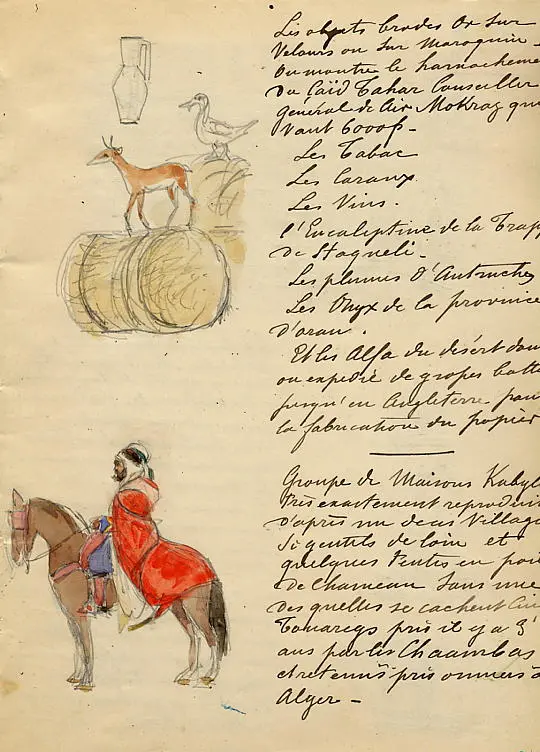 Les objets brodés Or sur
Velours ou sur Maroquin -
On montre le harnacheme
Du Caïd Tahar Conseiller
général de Aïn Mokraz qu
Vaut 6000f -
Les Tabac
Les Coraux.
Les Vins.
l'Eucaliptine de la Trapp
De Staqueli -
Les plumes D'Autruches
Les Onyx de la province
D'oran.
Et les Alfa du désért don
on expedie de grosses batte
jusqu'en Angleterre pour
la fabrication du papier
Groupe de Maisons Kabyl
très exactement reproduit
D'après un de ces Villag
Si gentils de loin et
quelques tentes en poi
De Chameau sous une
Des quelles se cachent Cin
Touaregs pris il y a 3
ans par les Chaambas
et retenus prisonniers à
Alger -